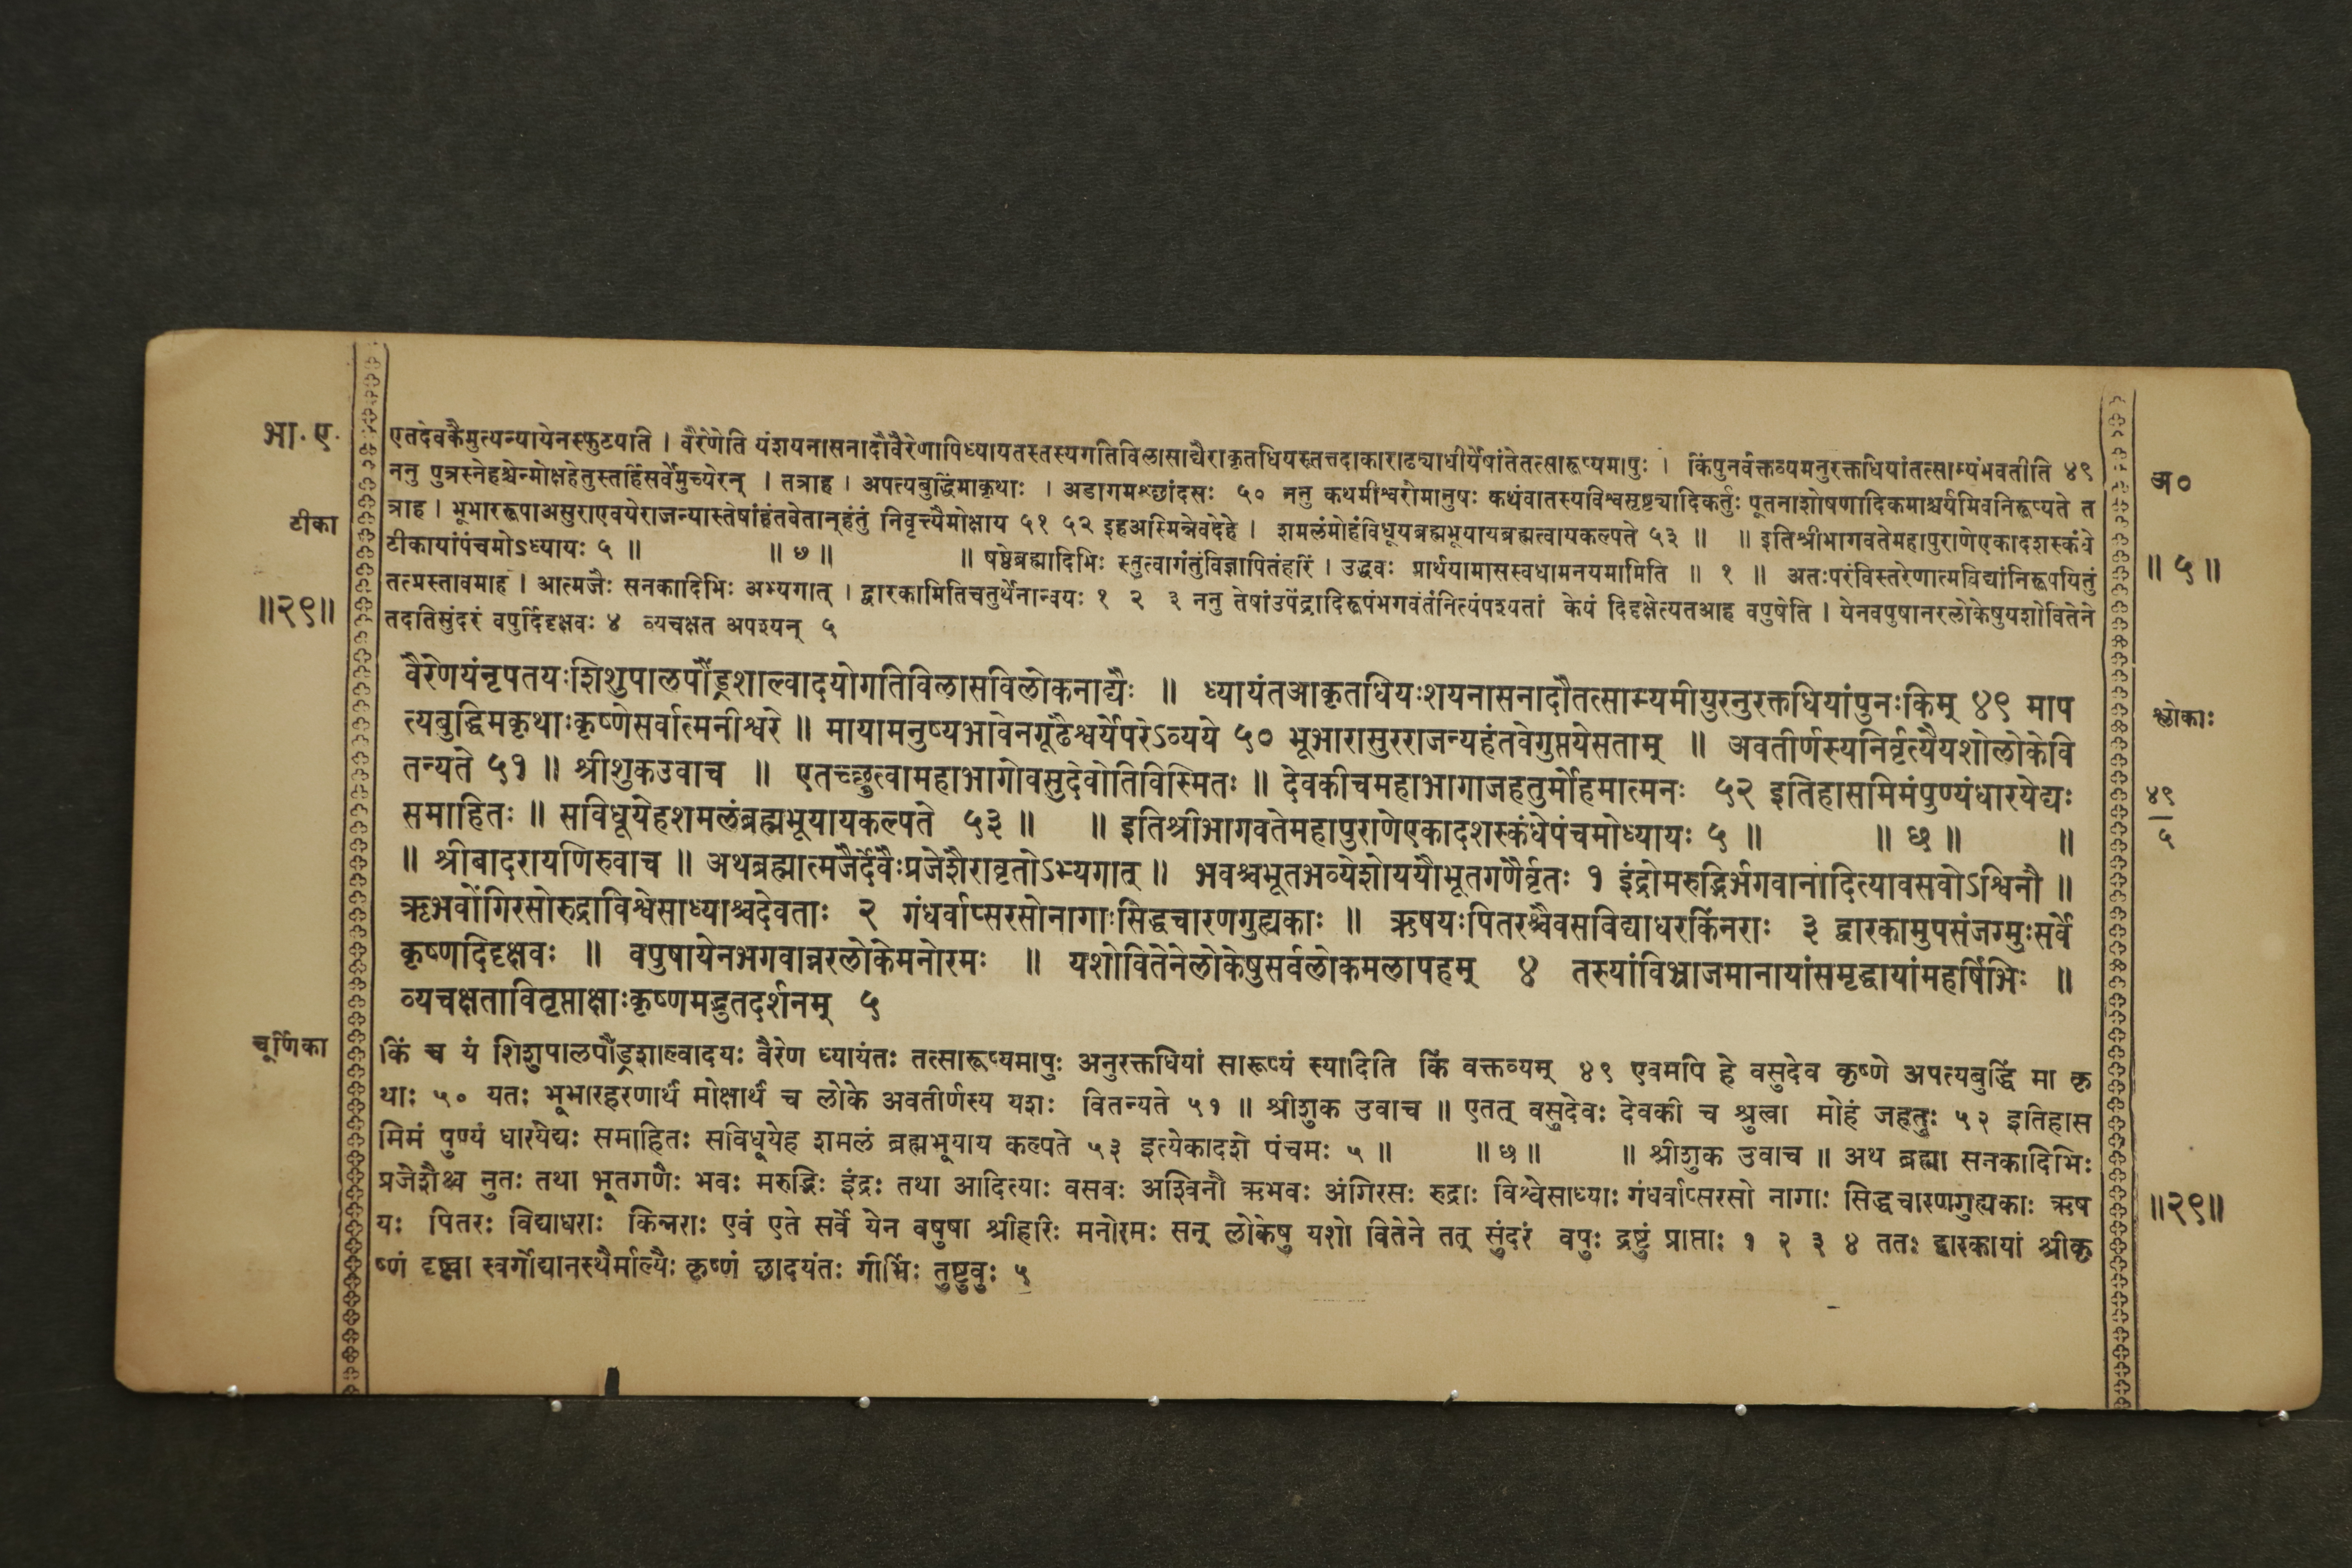 भा. ए.
टीका
॥२९॥
एतदेवकैमुत्यन्यायेनस्फुटयति । वैरेणेति यंशयनासनादौवैरेणापिध्यायतस्तस्यगतिविलासाद्यैराकृतधियस्तत्तदाकाराढ्याधीर्येषांतेतत्सारूप्यमापुः । किंपुनर्वक्तव्यमनुरक्तधियांतत्साम्यंभवतीति ४९
ननु पुत्रस्नेहश्चेन्मोक्षहेतुस्तर्हिसर्वेमुच्येरन् । तत्राह । अपत्यबुद्धिंमाकृथाः । अडागमश्छांदसः ५० ननु कथमीश्वरोमानुषः कथंवातस्यविश्वसृष्ट्यादिकर्तुः पूतनाशोषणादिकमाश्चर्यमिवनिरूप्यते त
त्राह । भूभाररूपाअसुराएवयेराजन्यास्तेषांहंतवेतान्हंतुं निवृत्त्यैमोक्षाय ५१ ५२ इहअस्मिन्नेवदेहे । शमलंमोहंविधूयब्रह्मभूयायब्रह्मत्वायकल्पते ५३ ॥ ॥ इतिश्रीभागवतेमहापुराणेएकादशस्कंधे
टीकायांपंचमोऽध्यायः ५ ॥ ॥ ७ ॥ ॥ षष्ठेब्रह्मादिभिः स्तुत्वागंतुंविज्ञापितंहरिं । उद्धवः प्रार्थयामासस्वधामनयमामिति ॥ १ ॥ अतःपरंविस्तरेणात्मविद्यांनिरूपयितुं
तत्प्रस्तावमाह । आत्मजैः सनकादिभिः अभ्यगात् । द्वारकामितिचतुर्थेनान्वयः १ २ ३ ननु तेषांउपेंद्रादिरूपंभगवंतंनित्यंपश्यतां केयं दिदृक्षेत्यतआह वपुषेति । येनवपुषानरलोकेषुयशोवितेने
तदतिसुंदरं वपुर्दिदृक्षवः ४ व्यचक्षत अपश्यन् ५
वैरेणयंनृपतयःशिशुपालपौंड्रशाल्वादयोगतिविलासविलोकनाद्यैः ॥ ध्यायंतआकृतधियःशयनासनादौतत्साम्यमीयुरनुरक्तधियांपुनःकिम् ४९ माप
त्यबुद्धिमकृथाःकृष्णेसर्वात्मनीश्वरे ॥ मायामनुष्यभावेनगूढैश्वर्येपरेऽव्यये ५० भूभारासुरराजन्यहंतवेगुप्तयेसताम् ॥ अवतीर्णस्यनिर्वृत्यैयशोलोकेवि
तन्यते ५१ ॥ श्रीशुकउवाच ॥ एतच्छ्रुत्वामहाभागोवसुदेवोतिविस्मितः ॥ देवकीचमहाभागाजहतुर्मोहमात्मनः ५२ इतिहासमिमंपुण्यंधारयेद्यः
समाहितः ॥ सविधूयेहशमलंब्रह्मभूयायकल्पते ५३ ॥ ॥ इतिश्रीभागवतेमहापुराणेएकादशस्कंधेपंचमोध्यायः ५ ॥ ॥ छ ॥ ॥
॥ श्रीबादरायणिरुवाच ॥ अथब्रह्मात्मजैर्देवैःप्रजेशैरावृतोऽभ्यगात् ॥ भवश्चभूतभव्येशोययौभूतगणैर्वृतः १ इंद्रोमरुद्भिर्भगवानादित्यावसवोऽश्विनौ ॥
ऋभवोंगिरसोरुद्राविश्वेसाध्याश्चदेवताः २ गंधर्वाप्सरसोनागाःसिद्धचारणगुह्यकाः ॥ ऋषयःपितरश्चैवसविद्याधरकिंनराः ३ द्वारकामुपसंजग्मुःसर्वे
कृष्णदिदृक्षवः ॥ वपुषायेनभगवान्नरलोकेमनोरमः ॥ यशोवितेनेलोकेषुसर्वलोकमलापहम् ४ तस्यांविभ्राजमानायांसमृद्धायांमहर्षिभिः ॥
व्यचक्षतावितृप्ताक्षाःकृष्णमद्भुतदर्शनम् ५
चूर्णिका
किं च यं शिशुपालपौंड्रशाल्वादयः वैरेण ध्यायंतः तत्सारूप्यमापुः अनुरक्तधियां सारूप्यं स्यादिति किं वक्तव्यम् ४९ एवमपि हे वसुदेव कृष्णे अपत्यबुद्धिं मा कृ
थाः ५० यतः भूभारहरणार्थं मोक्षार्थं च लोके अवतीर्णस्य यशः वितन्यते ५१ ॥ श्रीशुक उवाच ॥ एतत् वसुदेवः देवकी च श्रुत्वा मोहं जहतुः ५२ इतिहास
मिमं पुण्यं धारयेद्यः समाहितः सविधूयेह शमलं ब्रह्मभूयाय कल्पते ५३ इत्येकादशे पंचमः ५ ॥ ॥ छ ॥ ॥ श्रीशुक उवाच ॥ अथ ब्रह्मा सनकादिभिः
प्रजेशैश्च नुतः तथा भूतगणैः भवः मरुद्भिः इंद्रः तथा आदित्याः वसवः अश्विनौ ऋभवः अंगिरसः रुद्राः विश्वेसाध्याः गंधर्वाप्सरसो नागाः सिद्धचारणगुह्यकाः ऋष
यः पितरः विद्याधराः किन्नराः एवं एते सर्वे येन वषुषा श्रीहरिः मनोरमः सन् लोकेषु यशो वितेने तत् सुंदरं वपुः द्रष्टुं प्राप्ताः १ २ ३ ४ ततः द्वारकायां श्रीकृ
ष्णं दृष्ट्वा स्वर्गोद्यानस्थैर्माल्यैः कृष्णं छादयंतः गीर्भिः तुष्टुवुः ५
अ०
॥ ५ ॥
श्लोकाः
४९
५
॥२९॥